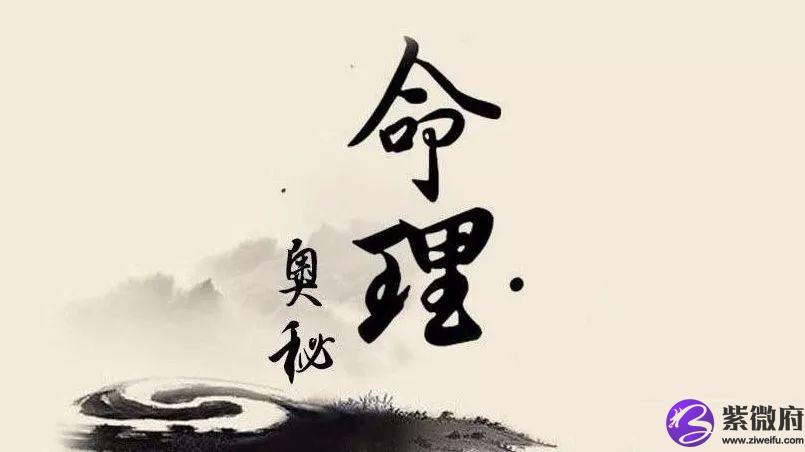 命理
奥秘
紫微府
www.ziweifu.com